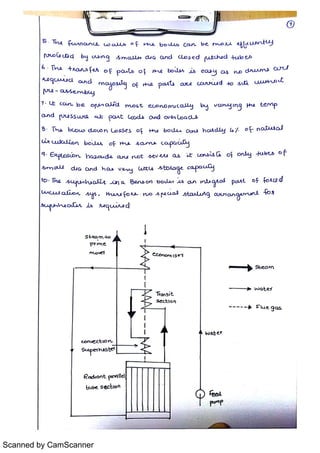 5. The furnance walls of the boiler can be more efficiently
protected by using smaller dia and closed pitched tubes
6. The transfer of parts of the boiler is easy as no drums are
required and majority of the parts are carried to site without
pre-assembly
7. It can be operated most economically by varying the temp
and pressure at part loads and overloads
8. The blow down losses of the boiler are hardly 4% of natural
circulation boiler of the same capacity
9. Explosion hazards are not severe as it consists of only tubes of
small dia and has very little storage capacity
10. The superheater in a Benson boiler is an integral part of forced
circulation sys. therefore no special starting arrangement for
superheater is required
Steam to
prime
mover
Economiser
Steam
Transit
section
water
Flue gas
water
convection
Superheater
Radiant parallel
tube section
Feed
pump
Scanned by CamScanner